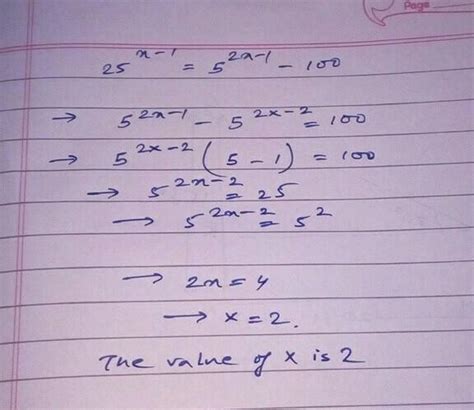 Page
25^{x-1} = 5^{2x-1} - 100
→ 5^{2x-1} - 5^{2x-2} = 100
→ 5^{2x-2} ( 5 - 1 ) = 100
→ 5^{2x-2} = 25
→ 5^{2x-2} = 5^2
→ 2x = 4
→ x = 2.
The value of x is 2